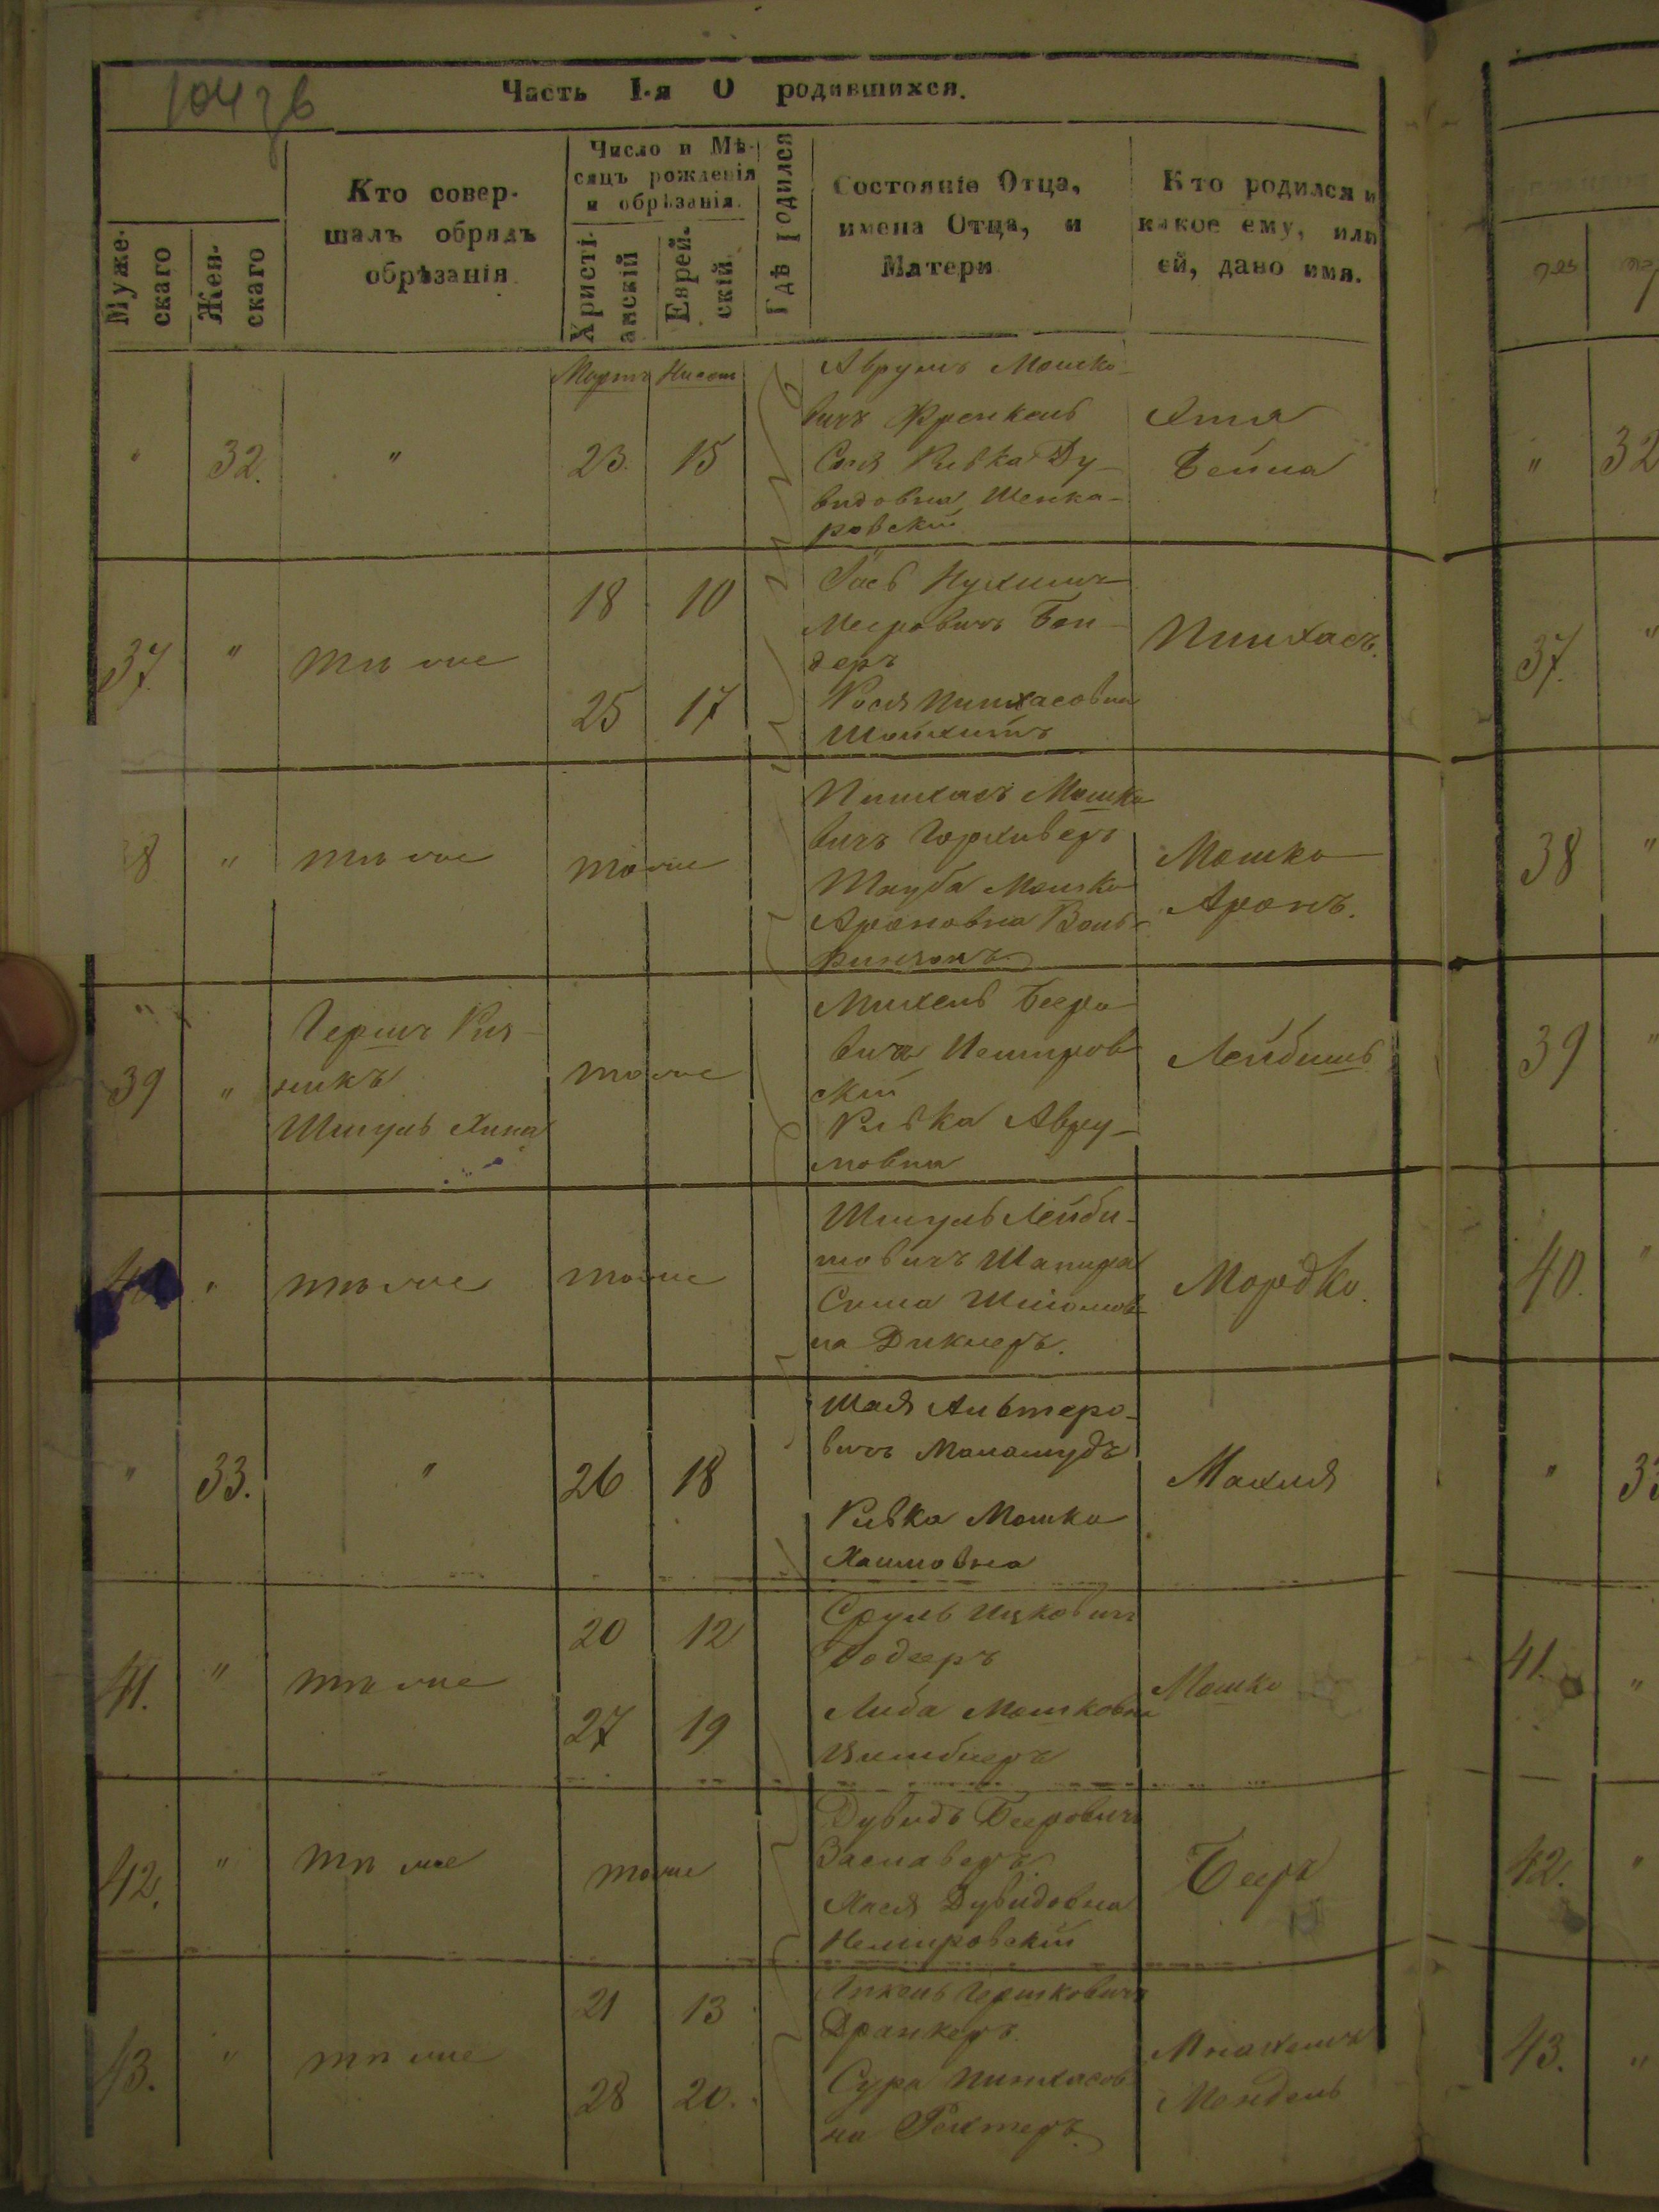 1043б
Часть I-я О родившихся.
Муже-
скаго
Жен-
скаго
Кто совер-
шалъ обрядъ
обрѣзанія
Число и Мѣ-
сяцъ рожденія
и обрѣзанія.
Христі-
анскій
Еврей-
скій
Гдѣ родился
Состояніе Отца,
имена Отца, и
Матери
Кто родился и
какое ему, или
ей, дано имя.
Мартъ Нисонъ
" 32. " 23. 15
Аврумъ Мошко-
вичъ Френкель
Сося Ривка Ду-
видовна Шенка-
ровскій
Этя
Бейла
37. " тѣ же
18 10
25 17
Іось Нухимъ
Мееровичъ Бен-
деръ
Рося Пинхасовна
Шойхитъ
Пинхасъ.
8 " тѣ же тоже
Пинхасъ Мошко
вичъ Горхиверъ
Тауба Мошко
Ароновна Воль-
финзонъ
Мошко
Аронъ.
39 "
Гершъ Рез-
никъ
Шмуль Хина
тоже
Михель Бееро
вичъ Немиров
скій
Ривка Авру-
мовна
Лейбишъ
40 " тѣ же тоже
Шмуль Лейби-
шовичъ Шапира
Сима Шліомов
на Дикнеръ.
Мордко.
" 33. " 26 18
Шая Альтеро-
вичъ Маламудъ
Ривка Мошко
Хаимовна
Махля
41. " тѣ же
20 12
27 19
Сруль Ицковичъ
Бодсеръ
Либа Мошковна
Мошко
42. " тѣ же тоже
Дувидъ Бееровичъ
Заславеръ.
Хася Дувидовна
Немировскій
Бееръ
43. " тѣ же
21 13
28 20.
Янкель Гершковичъ
Дранкеръ.
Сура Пинхасов
на Рехтеръ.
Мнахемъ
Мендель
32
37.
38
39
40.
33
41.
42.
43.